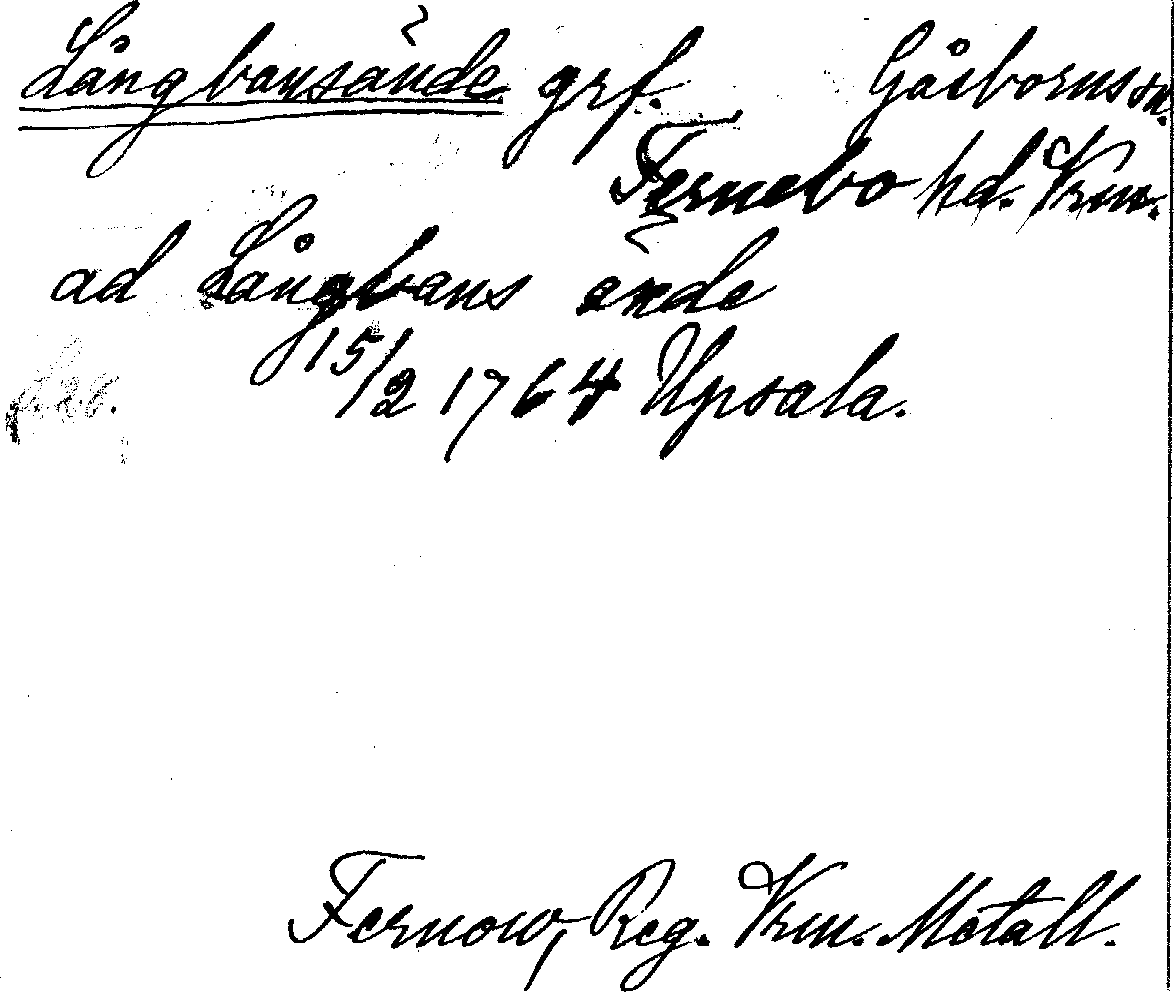 Långbansände grf. Gåsbornssn.
Fernebo hd. Vrm.
ad Långbans ände
15/2 1764 Upsala.
Fernow, Reg. Vrm. Metall.